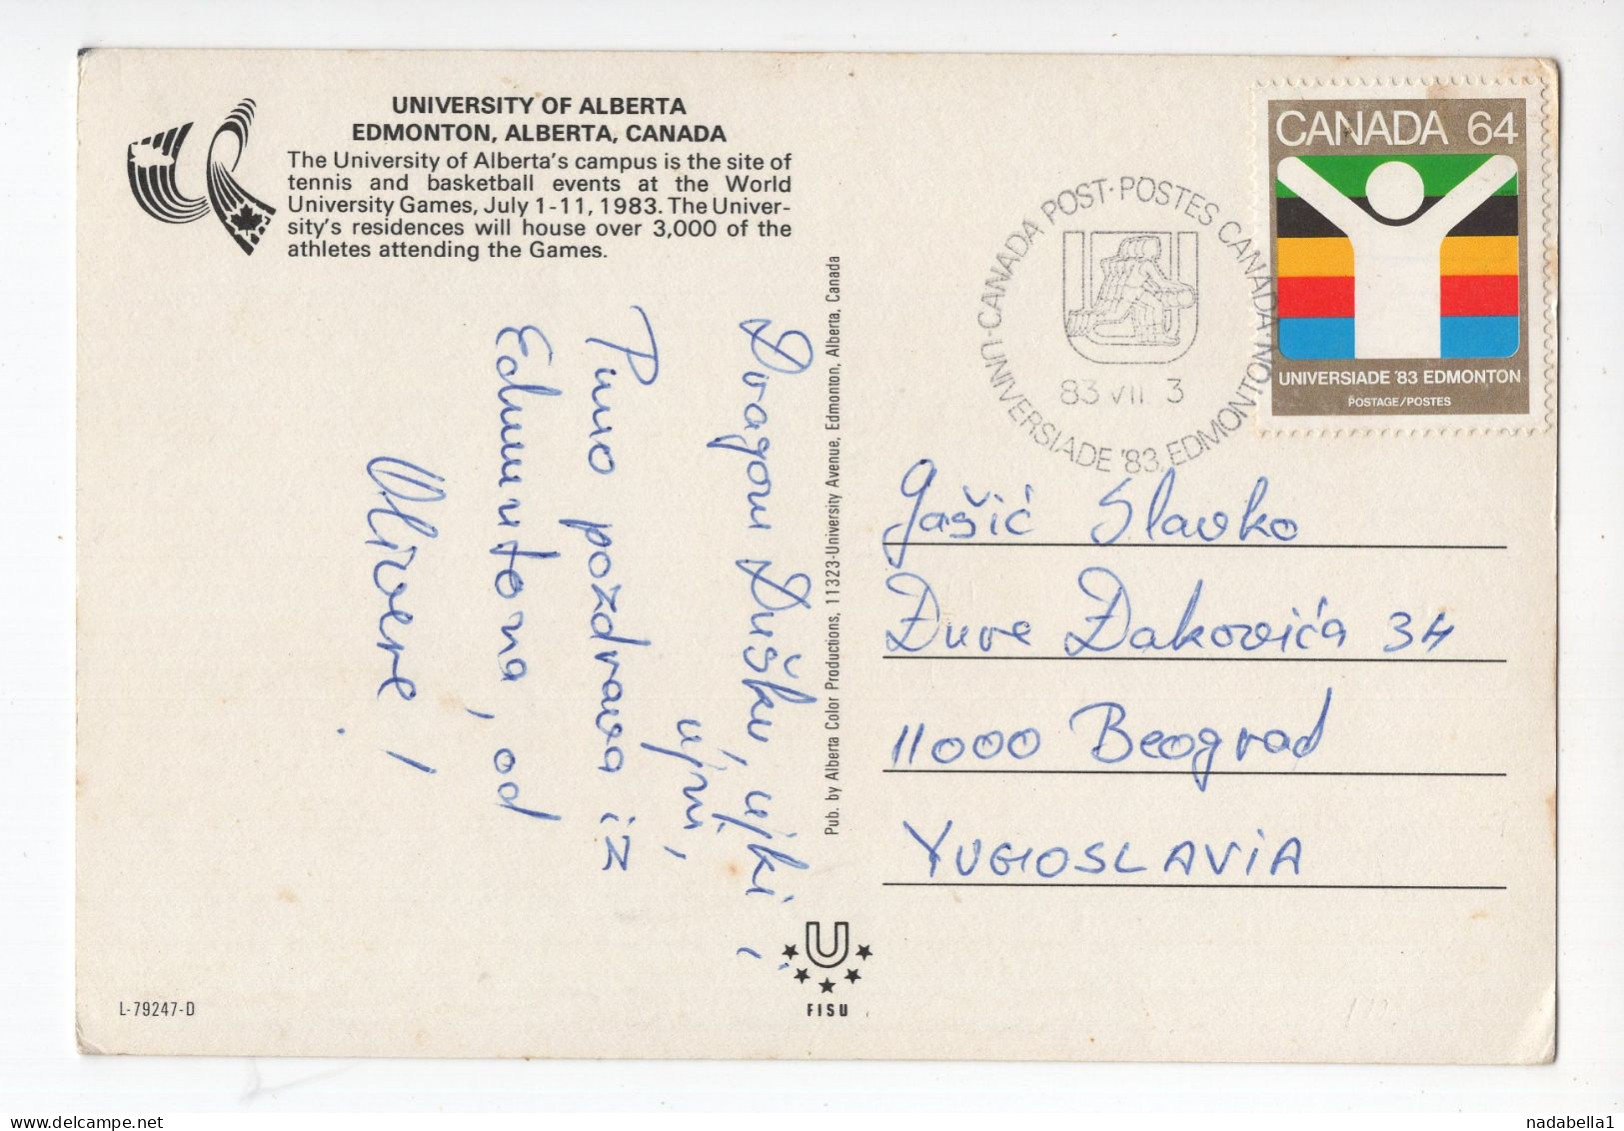 UNIVERSITY OF ALBERTA
EDMONTON, ALBERTA, CANADA
The University of Alberta's campus is the site of
tennis and basketball events at the World
University Games, July 1-11, 1983. The Univer-
sity's residences will house over 3,000 of the
athletes attending the Games.
Dragom Dušku, ujki i
ujni,
Puno pozdrava iz
Edmontona, od
Olivere!
Pub. by Alberta Color Productions, 11323-University Avenue, Edmonton, Alberta, Canada
CANADA POST·POSTES CANADA
UNIVERSIADE '83, EDMONTON
83 VII 3
CANADA 64
UNIVERSIADE '83 EDMONTON
POSTAGE/POSTES
Gašić Slavko
Đure Đakovića 34
11000 Beograd
YUGOSLAVIA
U
FISU
L-79247-D
nadabella1